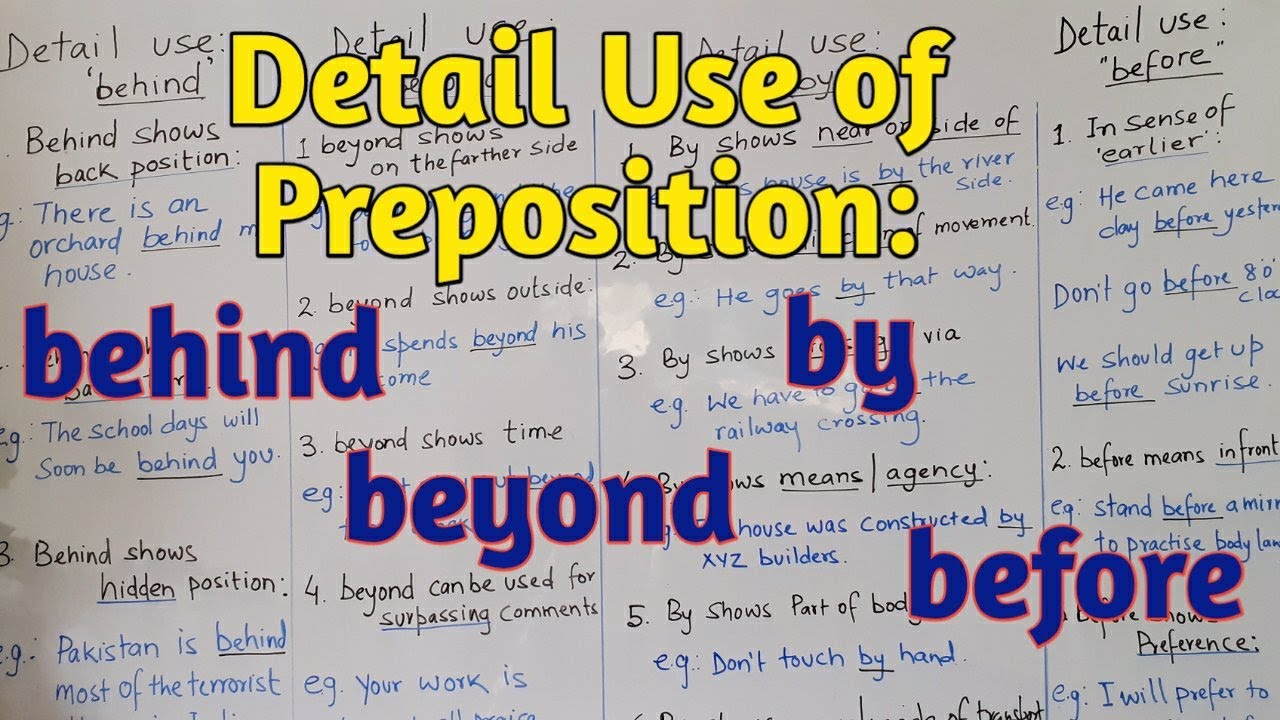 Detail Use of
Preposition:
behind
by
beyond
before
Detail use:
'behind'
Behind shows
back position:
g: There is an
orchard behind m
house.
g: The school days will
Soon be behind you.
3. Behind shows
hidden position:
e.g.: Pakistan is behind
most of the terrorist
Detail use:
1 beyond shows
on the farther side
2. beyond shows outside:
spends beyond his
3. beyond shows time
eg:
4. beyond can be used for
surpassing comments
eg. Your work is
Detail use:
by
1. By shows near or side of
house is by the river
side.
2. By
of movement.
eg: He goes by that way.
3. By shows
via
e.g. We have to go
the
railway crossing.
shows means/agency:
house was constructed by
XYZ builders.
5. By shows Part of body
e.g: Don't touch by hand.
Detail use:
"before"
1. In sense of
'earlier':
e.g: He came here
day before yester
Don't go before 8o'
cloc
We should get up
before sunrise.
2. before means infront
eg: stand before a mirr
to practise body lan
Preference:
e.g: I will prefer to